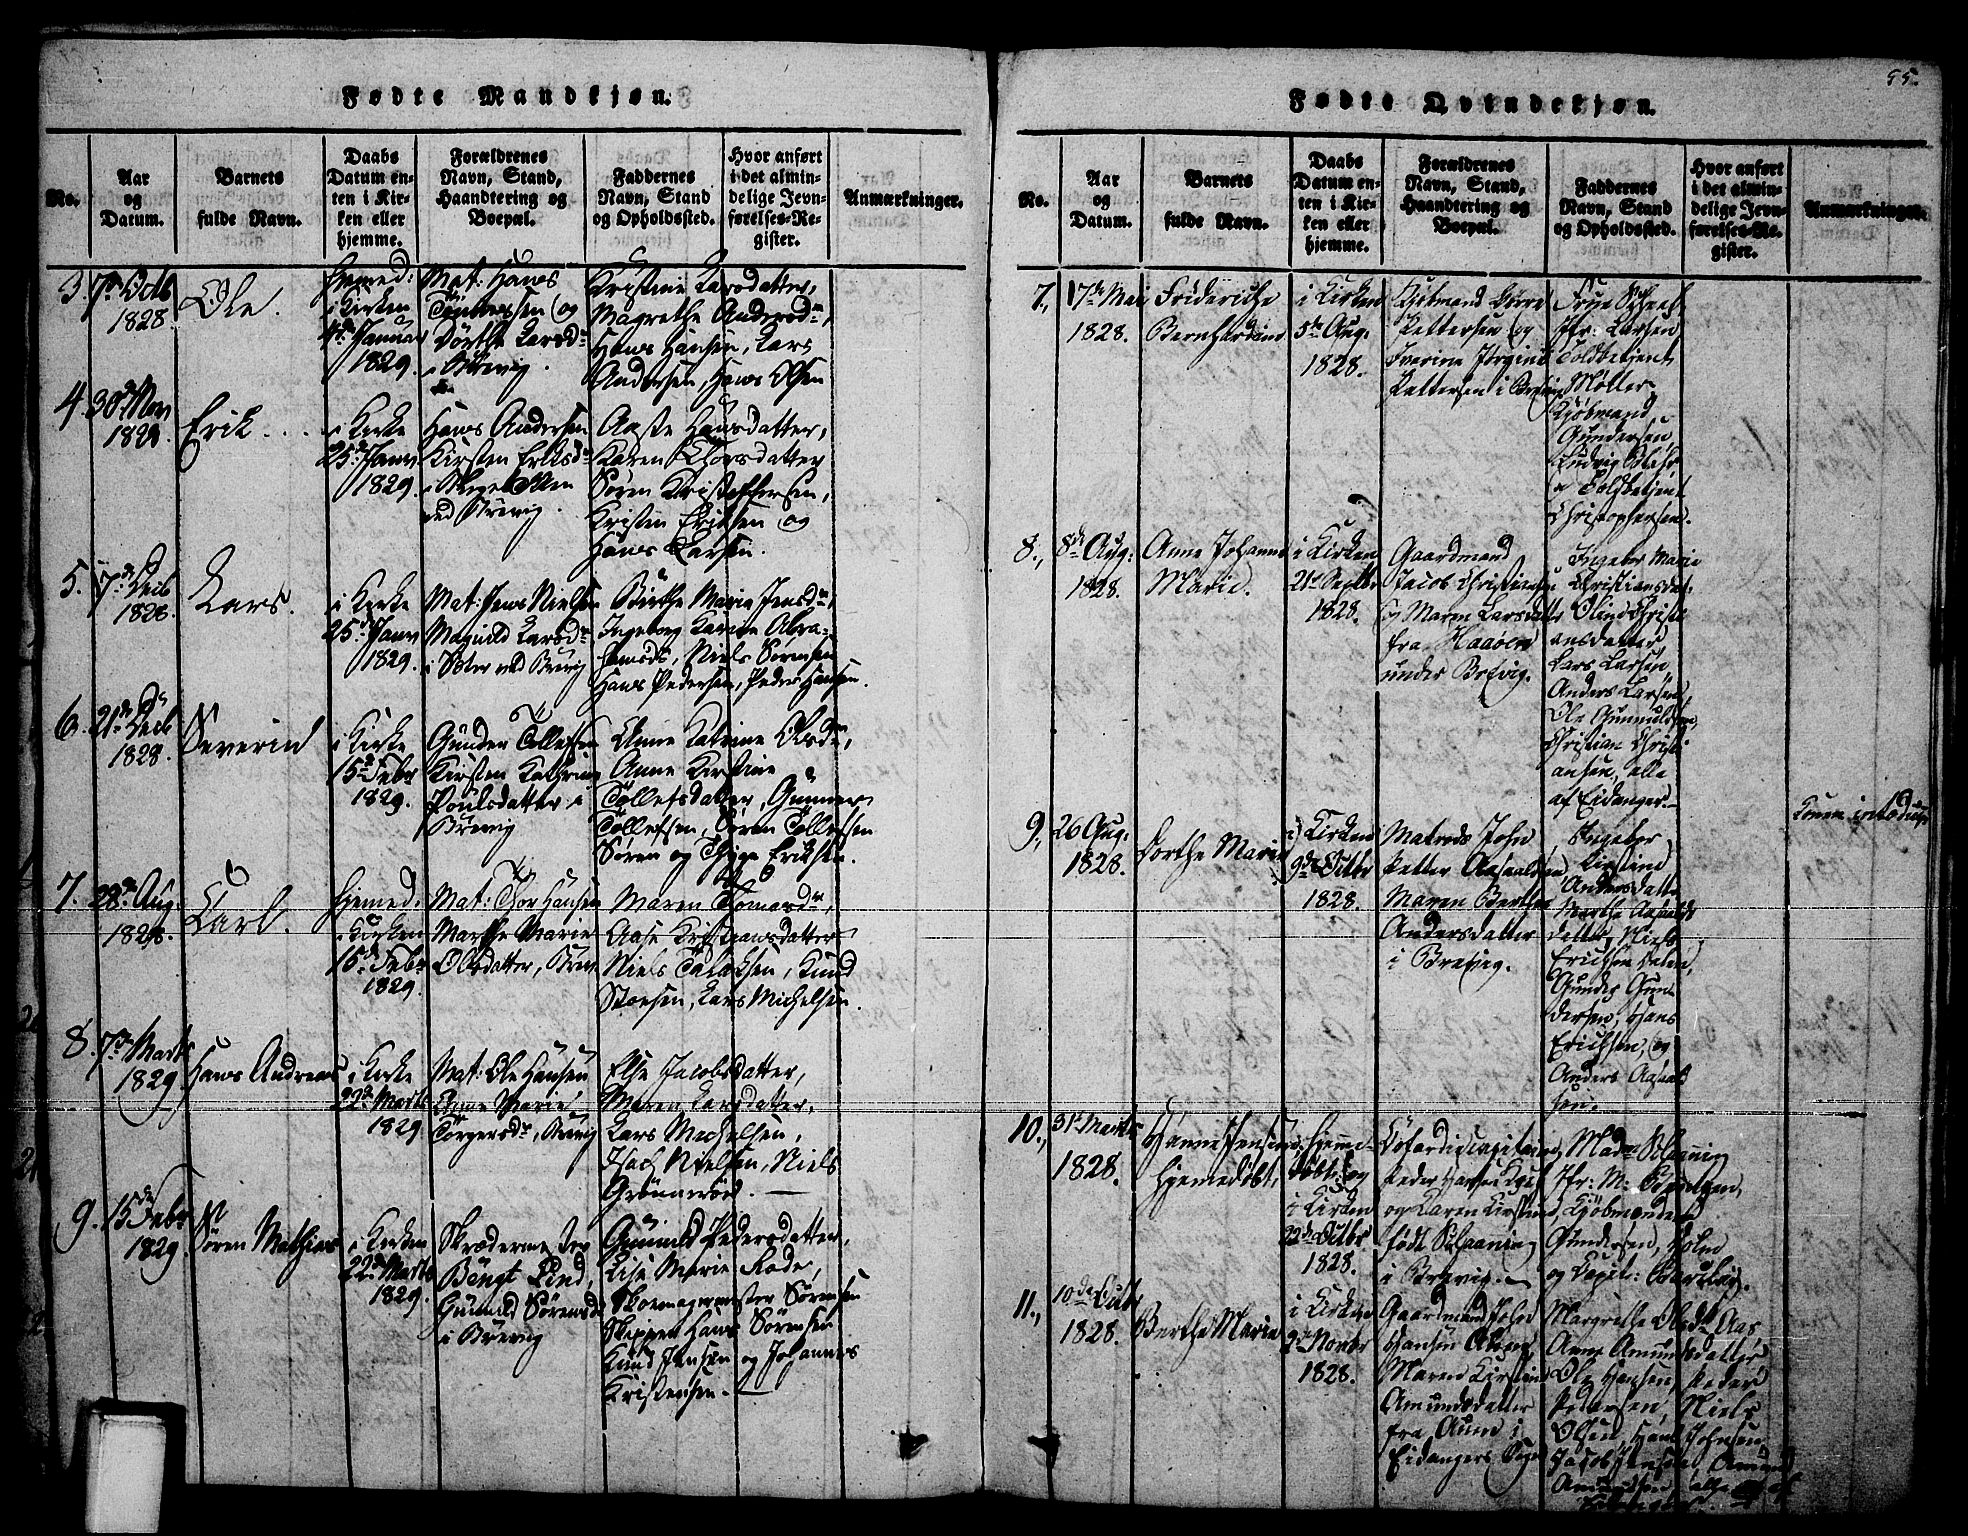 55.
Fødte Mandkjøn.
No.
Aar
og
Datum.
Barnets
fulde Navn.
Daabs
Datum en-
ten i Kir-
ken eller
hjemme.
Forældrenes
Navn, Stand,
Haandtering og
Boepæl.
Faddernes
Navn, Stand
og Opholdssted.
Hvor anført
i det almin-
delige Jevn-
førelses-Re-
gister.
Anmærkninger.
3. 7de Octb
1828
Ole.
hjemmed:
i Kirken
4de Januar
1829.
Mat: Hans
Tønnessen og
Dorthe Larsd:
i Brevig.
Kristine Larsdatter,
Magrethe Andersd:,
Hans Hansen, Lars
Andersen, Hans Olsen
4. 30 Nov
1828.
Erik.
i Kirke
25de Janr
1829.
Hans Andersen
Kirsten Eriksd:
ved Brevig.
Aaste Hansdatter,
Karen Thorsdatter
Søren Kristoffersen,
Kristen Eriksen og
Hans Larsen.
5. 17de Decb
1828.
Lars.
i Kirke
25de Janr
1829.
Mat: Jens Nielsen
Magnild Larsd:
ved Brevig
Birthe Marie Jensd:,
Ingeborg Karine Abra-
hamsd:, Niels Sørensen
Hans Pedersen, Peder Hansen.
6. 21de Decb
1828.
Severin
i Kirke
15de Febr
1829.
Gunder Tollefsen
Kirsten Kathrine
Poulsdatter i
Brevig
Anne Katrine Olsd:,
Anne Kirstine
Tollefsdatter, Gunner
Tollefsen, Søren Tollefsen
Søren og Thyge Eriksen.
7. 28de Aug.
1828.
Carl.
hjemmed.
i Kirken
15de Febr
1829.
Mat: Thor Hansen
Marthe Marie
Olsdatter, Brev.
Maren Tomasd:,
Aase Kristiansdatter
Niels Talaksen, Knud
Steensen, Lars Michelsen.
8. 7de Marts
1829
Hans Andreas
i Kirke
22de Marts
1829
Mat: Ole Hansen
Anne Marie
Torgersd:, Brevig
Else Jacobsdatter,
Maren Larsdatter,
Lars Michelsen,
Isach Nielsen, Niels
Grønnerød.
9. 15de Febr
1829.
Søren Mathias
i Kirken
22de Marts
1829.
Skræderme ster
Bengt Lind,
Gunild Sørensd:
i Brevig
Gunild Pedersdatter,
Lise Marie Rode,
Skomagermester Sørensen
Skipper Hans Sørensen
Knud Jensen og Johannes
Kristensen.
Fødte Qvindekjøn.
No.
Aar
og
Datum.
Barnets
fulde Navn.
Daabs
Datum en-
ten i Kir-
ken eller
hjemme.
Forældrenes
Navn, Stand,
Haandtering og
Boepæl.
Faddernes
Navn, Stand
og Opholdssted.
Hvor anført
i det almin-
delige Jevn-
førelses-Re-
gister.
Anmærkninger.
7., 17de Mai
1828.
Friderikke
Bernhardine
i Kirken
5te Aug.
1828.
Kjøbmand
Pettersen og
Iverine Jørgine
Pettersen i Brevig
Jfr: Larsen
Toldbetjent
Møller
Kjøbmand
Gundersen,
Ludvig
Toldbetjent
Christophersen.
8., 8de Aug:
1828.
Anne Johanne
Marie.
i Kirken
21de Septbr
1828.
Gaardmand
Jacob Christiansen
og Maren Larsdatter
fra Haaøen
under Brevig.
Ingeber Marie
Christiansdat:
Oline Christi
ansdatter,
Lars Larsen,
Anders Larsen,
Ole Gunnulfsen,
Christian Christi
ansen, alle
af Eidanger.
9., 26 Aug.
1828.
Dorthe Marie
i Kirken
9de Octbr
1828.
Matros John
Petter Aasaldsen
Maren Berthe
Andersdatter
i Brevig.
Ingeber
Kirstine
Andersdatter
Marthe Aasalds
datter, Niels
Ericksen Dalen,
Gunder Gun-
dersen, Hans
Ericksen, og
Anders Aasald
sen.
Konen introduc:
10., 31te Marts
1828.
Hanne Jensine
hjemmedøbt,
hjemme-
døbt, og
i Kirken
22de Octbr
1828.
Cofardicapitaine
Peder Hansen
og Karen Kirstine
født Schaaning
i Brevig.
Madme Schaaning
Jfr: M:
Kjøbmændene
Gundersen, Holm
og Capit:
11., 10de Octb
1828.
Berthe Marie
i Kirken
2de Novbr
1828.
Gaardmand John
Hansen
Maren Kirstine
Amundsdatter
fra Auen i
Eidangers Sogn
Margrethe Olsd: Aas,
Anne Amundsdatter
Ole Hansen, Peder
Pedersen, Niels
Olsen, Hans Johnsen
Jacob Jensen, Amund
Amundsen, alle af